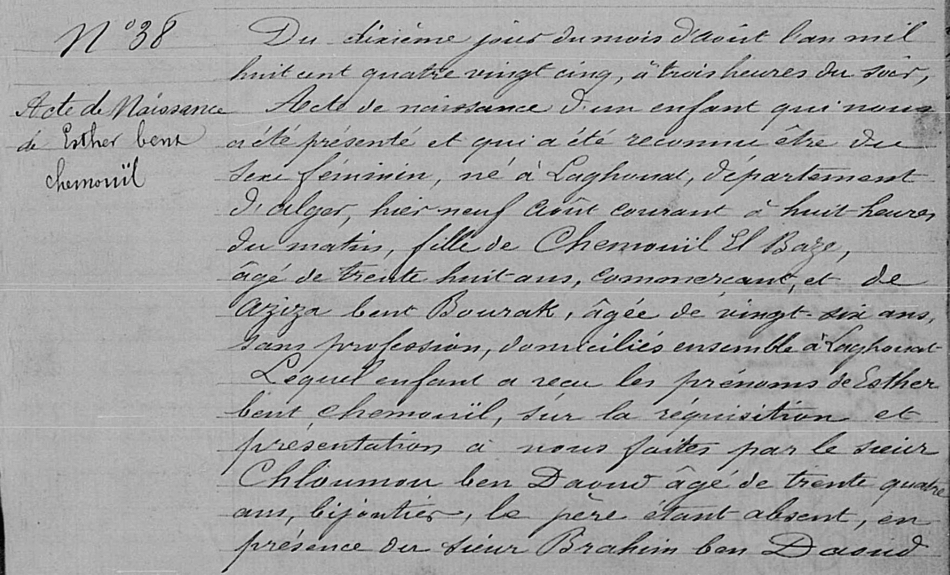 N° 38
Acte de Naissance
de Esther bent
Chemouïl
Du dixième jour du mois d'août l'an mil
huit cent quatre vingt cinq, à trois heures du soir,
Acte de naissance d'un enfant qui nous
a été présenté et qui a été reconnu être du
sexe féminin, né à Laghouat, département
d'alger, hier neuf août courant à huit heures
du matin, fille de Chemouïl El Baze,
âgé de trente huit ans, commerçant, et de
Aziza bent Bourak, âgée de vingt-six ans,
sans profession, domiciliés ensemble à Laghouat
Lequel enfant a reçu les prénoms de Esther
bent Chemouïl, sur la réquisition et
présentation à nous faites par le sieur
Chloumou ben Daoud âgé de trente quatre
ans, bijoutier, le père étant absent, en
présence du sieur Brahim ben Daoud